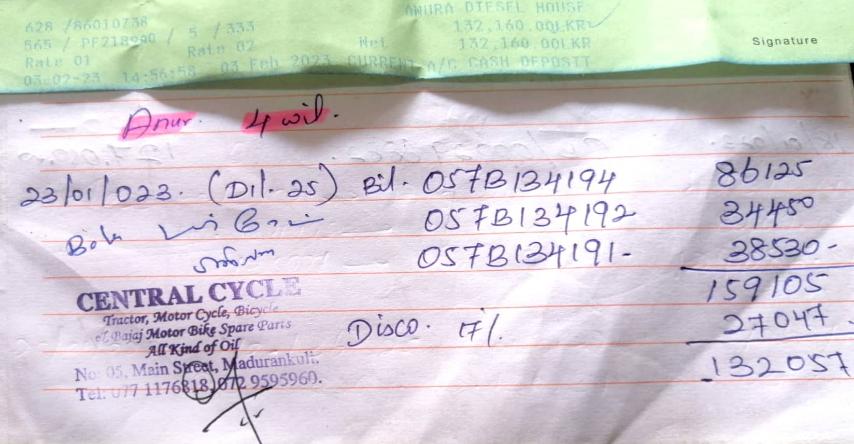 ANURA DIESEL HOUSE
628 /86010738 132,160.00LKR
565 / PF218990 / 5 / 333 Net 132,160.00LKR
Rate 01 Rate 02 Signature
03-02-23 14:56:58 03 Feb 2023 CURRENT A/C CASH DEPOSIT
Anur. 4 wil.
23/01/023. (Dil-25) Bil. 057B134194 86125
057B134192 34450
057B134191- 38530-
159105
CENTRAL CYCLE
Tractor, Motor Cycle, Bicycle
Bajaj Motor Bike Spare Parts
Disco. 17%. 27047
All Kind of Oil
132057
No: 05, Main Street, Madurankuli.
Tel: 077 1176818, 072 9595960.